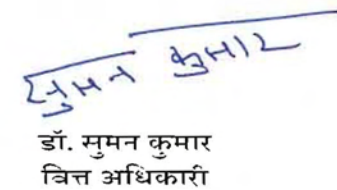 सुमन कुमार
डॉ. सुमन कुमार
वित्त अधिकारी